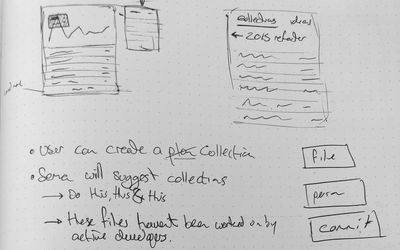 Collections ideas
← 2015 refactor
• User can create a plan Collection
• Sema will suggest collections
→ Do this, this & this
→ These files haven't been worked on by
active developers.
file
person
commit